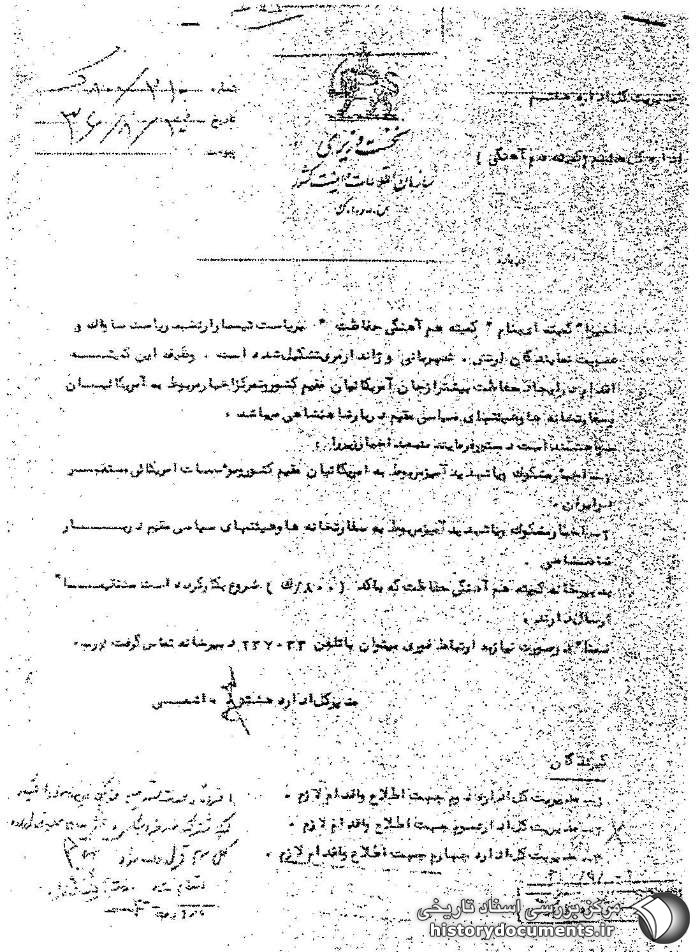 شماره ۲۱۰/۸۰۰/ک
تاریخ ۳۶/۸/۱۴
پیوست
نخست وزیری
سازمان اطلاعات و امنیت کشور
س.ا.و.ا.ک
مدیریت کل اداره هشتم
اداره کل هشتم (کمیته هم آهنگی)
درباره
اخیرا" کمیته ای بنام " کمیته هم آهنگی حفاظت " بریاست تیمسار ارتشبد ریاست ساواک و
عضویت نمایندگان ارتش . شهربانی و ژاندارمری تشکیل شده است . وظیفه این کمیته
اقدام در ایجاد حفاظت بیشتر از جان آمریکائیان مقیم کشور و تمرکز اخبار مربوط به آمریکائیان
و سفارتخانه ها و هیئتهای سیاسی مقیم دربار شاهنشاهی میباشد .
خواهشمند است دستور فرمایند منبعد اخبار زیر را .
۱ــ اخبار مشکوک و یا تهدید آمیز مربوط به امریکائیان مقیم کشور و موسسات امریکائی مستقر
در ایران .
۲ــ اخبار مشکوک و یا تهدید آمیز مربوط به سفارتخانه ها و هیئتهای سیاسی مقیم دربار
شاهنشاهی .
به دبیرخانه کمیته هم آهنگی حفاظت که با کد ( ۸۰۰/ک ) شروع بکار کرده است مستقیما"
ارسال دارند .
ضمنا" در صورت نیاز به ارتباط فوری میتوان با تلفن ۲۳۷۰۳۳ دبیرخانه تماس گرفت
مدیر کل اداره هشتم . هاشمی
گیرندگان
۱ــ مدیریت کل اداره دوم جهت اطلاع و اقدام لازم .
۲ــ مدیریت کل اداره سوم جهت اطلاع و اقدام لازم .
۳ــ مدیریت کل اداره چهارم جهت اطلاع و اقدام لازم .
مرکز بررسی اسناد تاریخی
historydocuments.ir